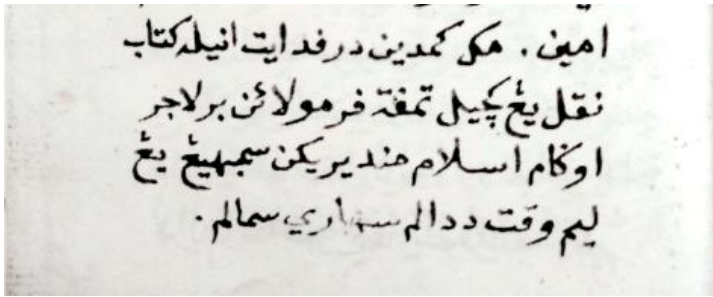 امين. مك كمدين درفد ايت انيله كتاب
نقل يڠ كچيل تمفة فرمولائن برلاجر
اوكام اسلام منديريكن سمبهيڠ يڠ
ليم وقت ددالم سهاري سمالم.